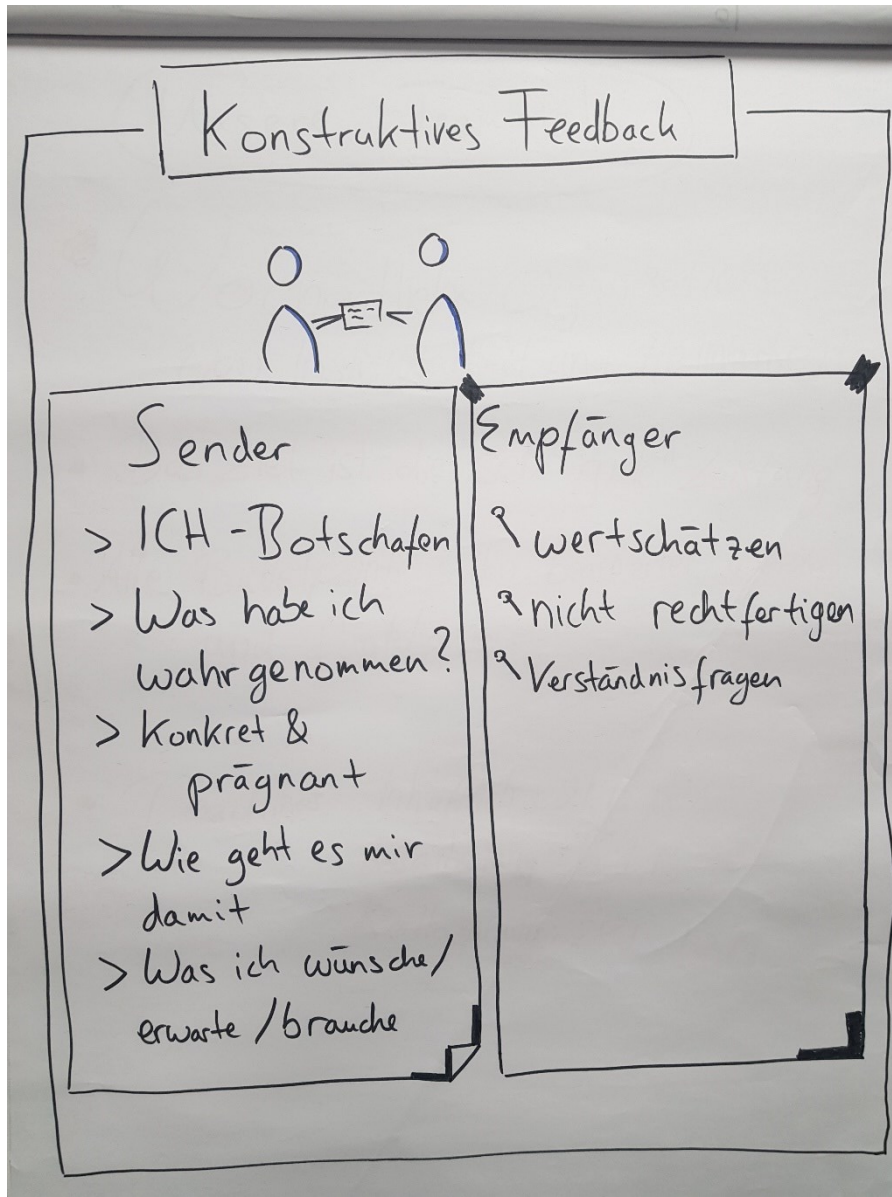 Konstruktives Feedback
Sender
> ICH-Botschafen
> Was habe ich
wahrgenommen?
> Konkret &
prägnant
> Wie geht es mir
damit
> Was ich wünsche/
erwarte/brauche
Empfänger
wertschätzen
nicht rechtfertigen
Verständnisfragen